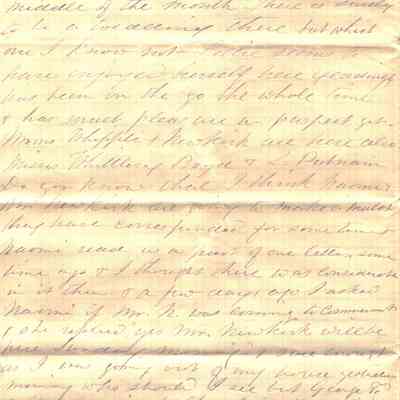 middle of the month There is surely
to be a wedding there but which
one I know not. Katie seems to
have enjoyed herself here greatly
has been on the go the whole time
& has much pleasure in prospect yet.
Misses Whipple & Newkirk are here also
Misses Boyd & L. Putnam
Do you know that I think Naomi &
Mr. Newkirk are going to make a match
they have corresponded for some time &
Naomi read us a part of one letter some
time ago & I thought there was considerable
in it then & a few days ago I asked
Naomi if Mr. N. was coming to Commencement
& she replied yes Mr. Newkirk will be
here Sunday morning
as I was going out of my house yesterday
morning who should I see but George T